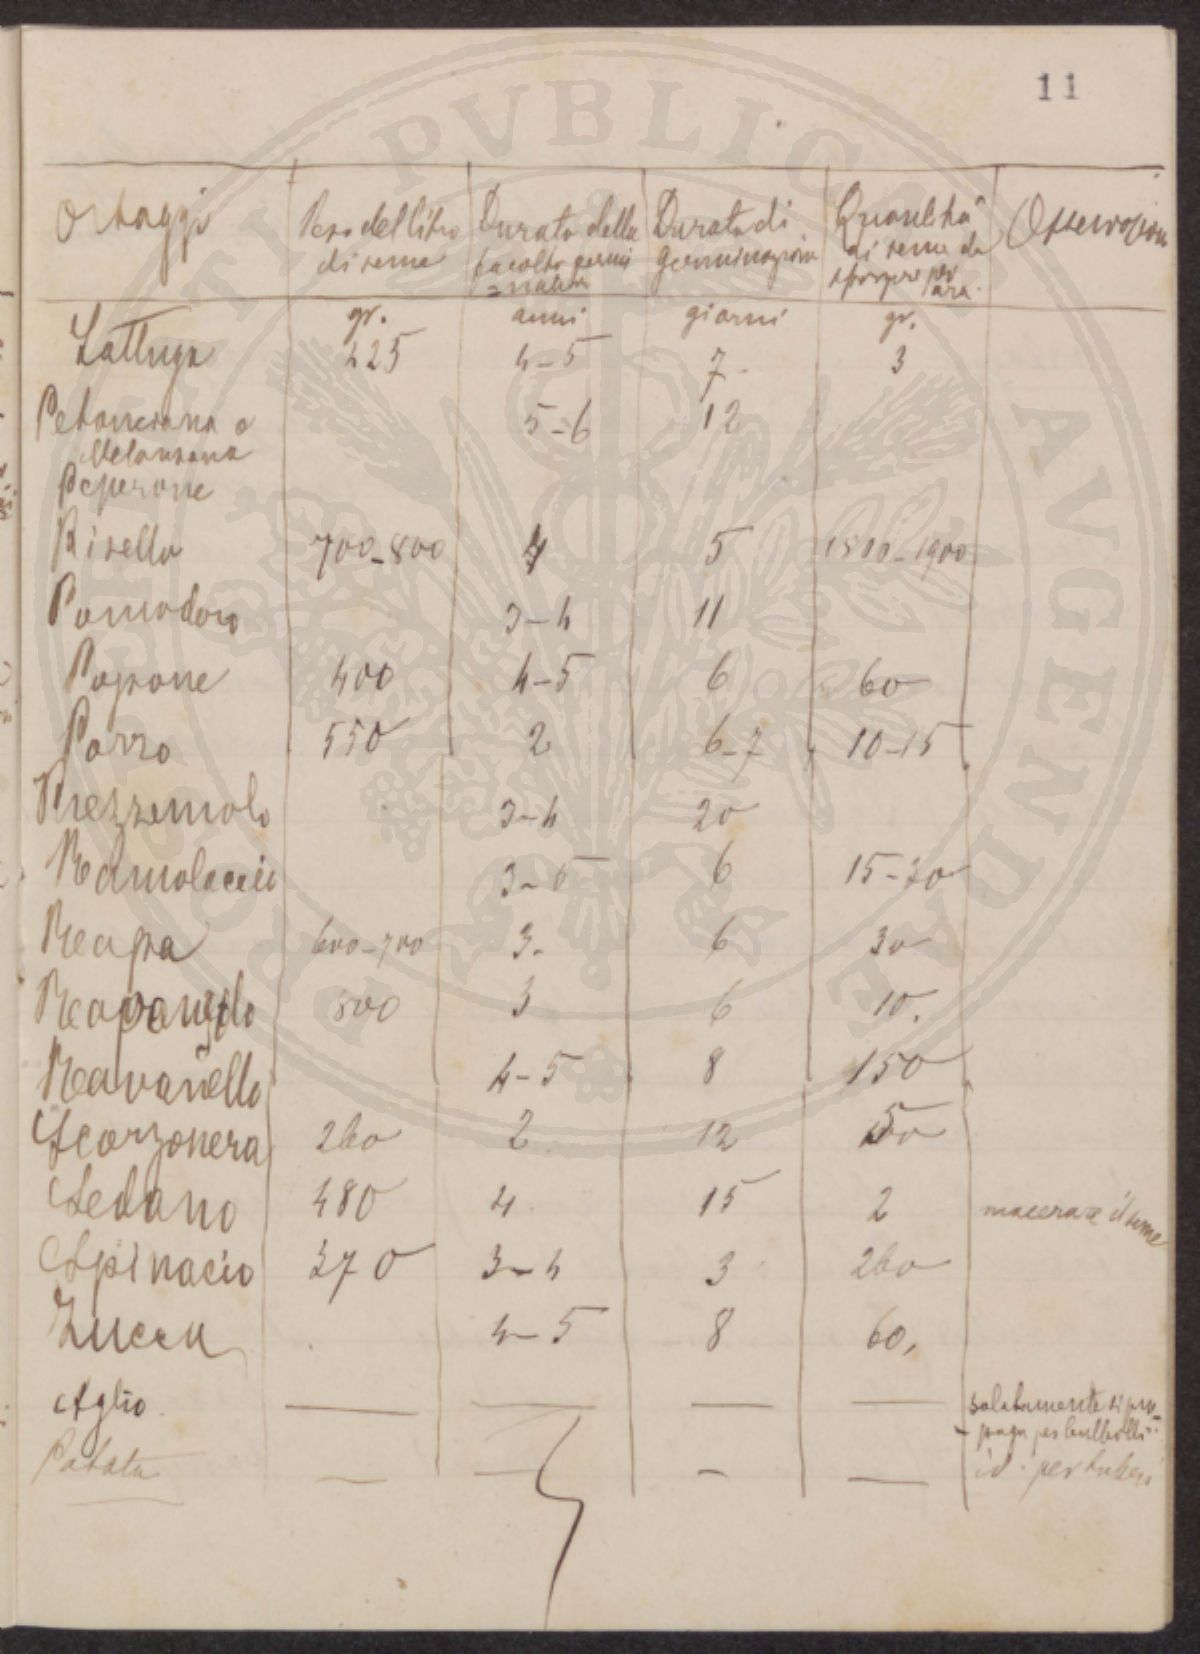 11
Ortaggi | Peso del litro di seme | Durata della facoltà germi=nativa | Durata di Germinazione | Quantità di seme da spargere per ara. | Osservazioni
gr. | anni | giorni | gr.
Lattuga | 425 | 4-5 | 7 | 3
Petonciana o | 5-6 | 12
Melanzana
Peperone
Pisello | 700-800 | 4 | 5 | 1800-1900
Pomodoro | 3-4 | 11
Popone | 400 | 4-5 | 6 | 60
Porro | 550 | 2 | 6-7 | 10-15
Prezzemolo | 3-4 | 20
Ramolaccio | 3-5 | 6 | 15-20
Rapa | 600-700 | 3 | 6 | 30
500 | 3 | 6 | 10.
Ravanello | 4-5 | 8 | 150
Scorzonera | 260 | 2 | 12
Sedano | 480 | 4 | 15 | 2 | macerare il seme
Spinacio | 370 | 3-4 | 3 | 260
Zucca | 4-5 | 8 | 60.
Aglio. | — | — | — | — | solatamente si pro-
paga per bulbilli
Patata | — | — | — | — | id. per tuberi
PROSPERITATI PVBLICAE AVGENDAE